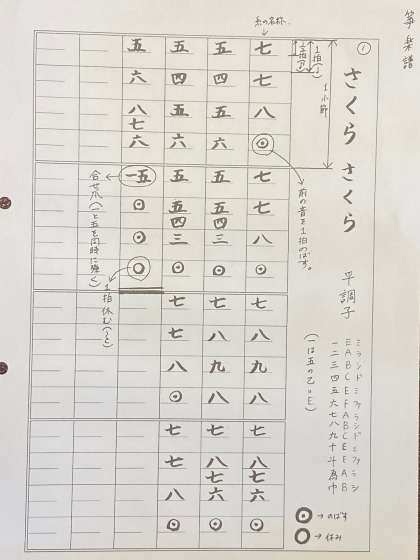 箏楽譜
①
さくら さくら
平調子
ミラシドミファラシドミファラシ
EABCEFABCEFAB
一二三四五六七八九十斗為巾
(一は五の乙=E)
◉→のばす
○→休み
1小節
1拍(1)
糸の名称
前の音を1拍のばす。
七 七 八 ◉
七 七 八 ◉
七 八 九 八
七 八七 六 ◉
五 四 五 六
五 五四 三 ◉
七 八 九 八
七 八七 六 ◉
五 四 五 六
五 五四 三 ◉
七 七 八 ◉
七 七 八 ◉
五 六 八七 六
一五 ◉ ◉ ○
合せ爪(一と五を同時に弾く)
1拍休む(ウと)